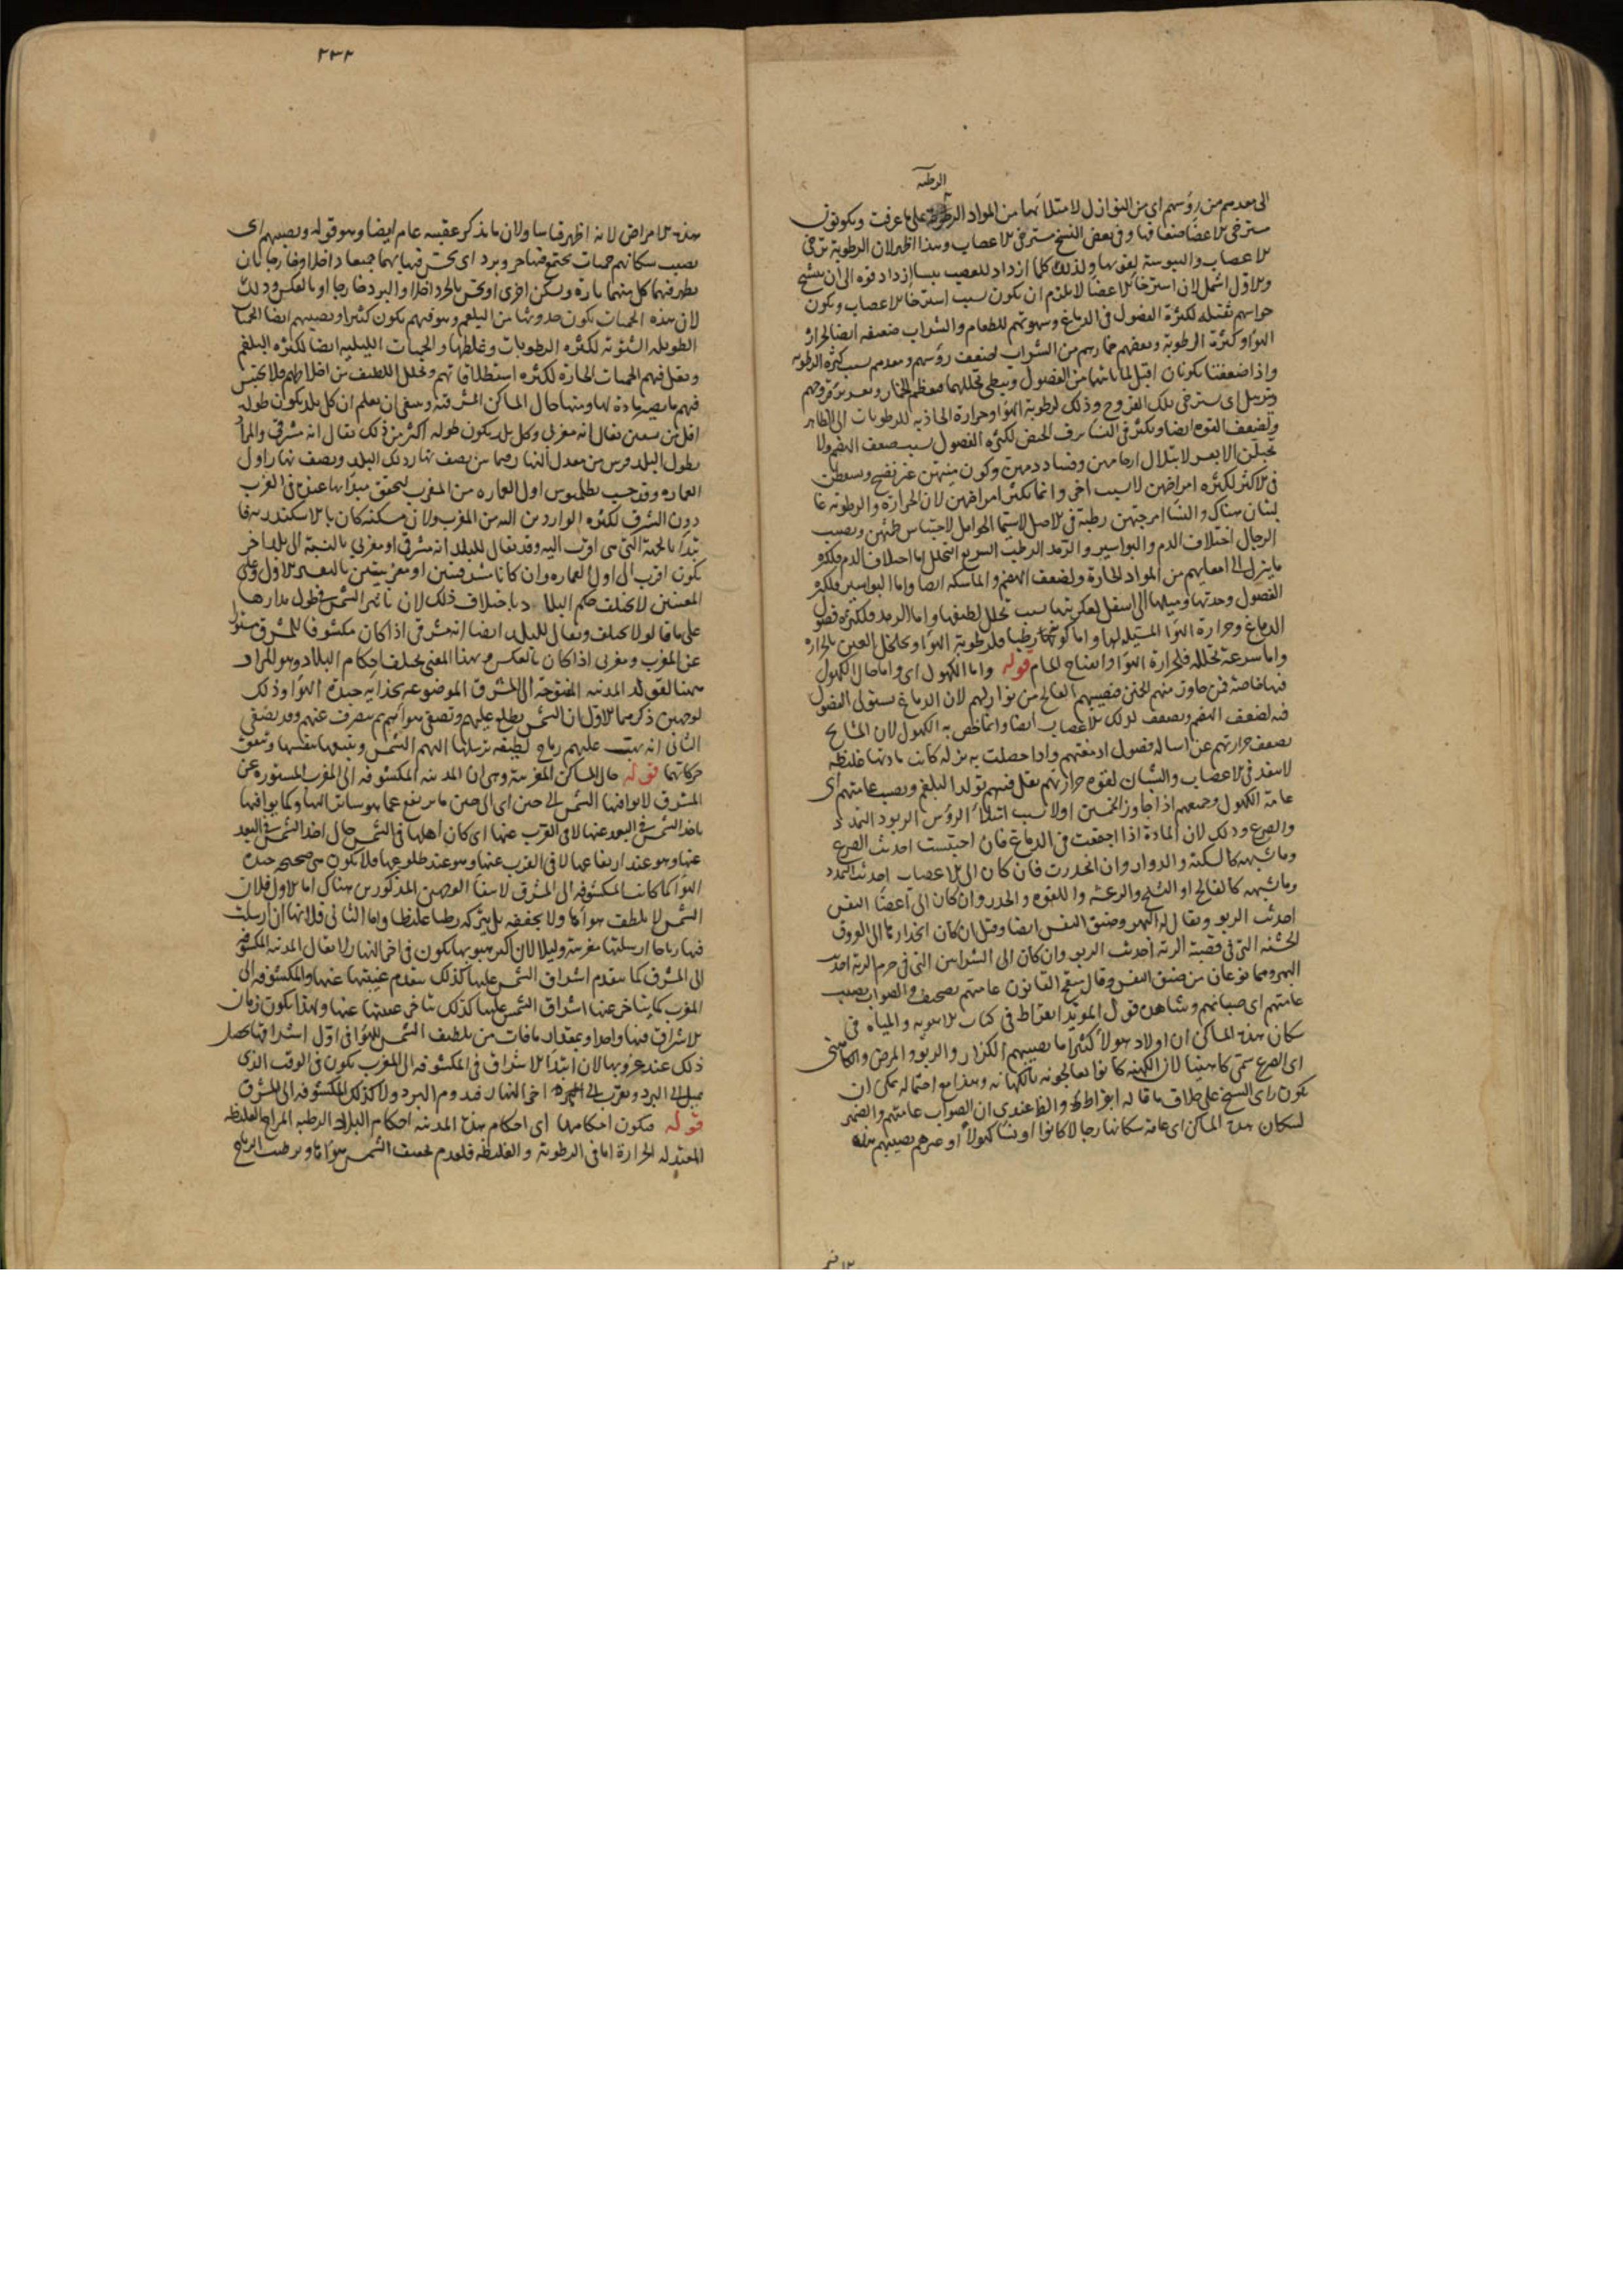 الرطبة
الى معدهم من رؤسهم اى من النوازل لامتلائها من المواد الرطبة على ما عرفت ويكونون
مسترخى الاعضا ضعافها وفى بعض النسخ مسترخى الاعصاب وهذا اظهر لان الرطوبة ترخى
الاعصاب واليبوسة تقويها ولذلك كلما ازداد العصب يبسا ازداد قوة الى ان يتشنج
والاول اشمل لان استرخا الاعضا لا يلزم ان يكون بسبب استرخا الاعصاب ويكون
حواسهم ثقيلة لكثرة الفضول فى الدماغ وشهوتهم للطعام والشراب ضعيفة ايضا لحرارة
الهوا وكثرة الرطوبة ويعظم خمارهم من الشراب لضعف رؤسهم ومعدهم بسبب كثرة الرطوبة
واذا ضعفتا يكونان اقبل لما ياتيها من الفضول ويبطى تحللها فيعظم الخمار ويعسر برء قروحهم
وتترهل اى تسترخى تلك القروح وذلك لرطوبة الهوا وحرارة الجاذبة للرطوبات الى الظاهر
وتضعف القوة ايضا ويكثر فى النسا نزف الحيض لكثرة الفضول بسبب ضعف الهضم ولا
يحبلن الا بعسر لابتلال ارحامهن وفساد دمهن وكون منيهن غير نضيج ويسقطن
فى الاكثر لكثرة امراضهن لا لسبب اخر وانما يكثر امراضهن لان الحرارة والرطوبة غا
لبتان هناك والنسا امزجتهن رطبة فى الاصل لا سيما الحوامل لاحتباس طمثهن ويصيب
الرجال اختلاف الدم والبواسير والرمد الرطب السريع التحلل اما اختلاف الدم فلكثرة
ما ينزل الى امعايهم من المواد الحارة ولضعف الهضم والماسكة ايضا واما البواسير فلكثرة
الفضول وحدتها وميلها الى اسفل لعكريتها بسبب تحلل لطيفها واما الرمد فلكثرة فضول
الدماغ وحرارة الهوا المسيلة لها واما كونه رطبا فلرطوبة الهوا وتخلخل العين بالحرارة
واما سرعة تحلله فلحرارة الهوا وانفتاح المسام قوله واما الكهول اى واما حال الكهول
فيها خاصة فمن جاوز منهم الخمسين فيصيبهم الفالج من نوازلهم لان الدماغ يستولى الفضول
فيه لضعف الهضم ويضعف لذلك الاعصاب ايضا وانما خص به الكهول لان المشايخ
يضعف حرارتهم عن اسالة فضول ادمغتهم واذا حصلت به نزلة كانت مادتها غليظة
لا ينفذ فى الاعصاب والشبان لقوة حرارتهم يقل فيهم تولد البلغم ويصيب عامتهم اى
عامة الكهول وجميعهم اذا جاوز الخمسين اولا بسبب امتلا الرؤس الربو والتمدد
والصرع وذلك لان المادة اذا اجتمعت فى الدماغ فان احتبست احدثت الصرع
وما يشبهه كالسكتة والدوار وان انحدرت فان كان الى الاعصاب احدثت التمدد
وما يشبهه كالفالج او التشنج والرعشة واللقوة والخدر وان كان الى اعضا النفس
احدثت الربو ويقال له البهر وضيق النفس ايضا وقيل ان كان انحدارها الى العروق
الخشنة التى فى قصبة الرئة احدثت الربو وان كان الى الشرايين التى فى جرم الرئة احدثت
البهر وهما نوعان من ضيق النفس وقال منقح القانون عامتهم تصحيف والصواب يصيب
عامتهم اى صبيانهم وشاهده قول المويد ابقراط فى كتاب الاهوية والمياه فى
سكان هذه المساكن ان اولاد هولا كثيرا ما يصيبهم الكزاز والربو والمرض الكاهنى
اى الصرع سمى كاهنيا لان الكهنة كانوا يعالجونه بالكهانة وهذا مع احتماله يمكن ان
يكون راى الشيخ على خلاف ما قاله ابقراط والظ عندى ان الصواب عامتهم والضمير
لسكان هذه المساكن اى عامة سكانها رجالا كانوا او نسا كهولا او غيرهم يصيبهم هذه
٢٣٢
هذه الامراض لانه اظهر قياسا ولان ما يذكر عقيبه عام ايضا وهو قوله ويصيبهم اى
يصيب سكانهم حميات يجتمع فيها حر وبرد اى يحس فيها بهما جميعا داخلا وخارجا بان
يظهر فيهما كل منهما تارة ويسكن اخرى او يحس بالحر داخلا والبرد خارجا او بالعكس وذلك
لان هذه الحميات يكون حدوثها من البلغم وهو فيهم يكون كثيرا ويصيبهم ايضا الحميات
الطويلة الشتوية لكثرة الرطوبات وغلظها والحميات الليلية ايضا لكثرة البلغم
ويقل فيهم الحميات الحارة لكثرة استطلاقاتهم وتحلل اللطيف من اخلاطهم فلا يحتبس
فيهم ما يصير مادة لها ومنها حال المساكن المشرقية وينبغى ان يعلم ان كل بلد يكون طوله
اقل من تسعين يقال انه مغربى وكل بلد يكون طوله اكثر من ذلك يقال انه مشرقى والمراد
بطول البلد قوس من معدل النهار فيما بين نصف نهار ذلك البلد ونصف نهار اول
العمارة وقد حسب بطلميوس اول العمارة من المغرب لتحقق مبدأها عنده فى الغرب
دون الشرق لكثرة الواردين اليه من المغرب ولان مسكنه كان بالاسكندرية فا
بتدا بالجهة التى هى اقرب اليه وقد يقال للبلد انه مشرقى او مغربى بالنسبة الى بلد اخر
يكون اقرب الى اول العمارة وان كانا مشرقيين او مغربيين بالتفسير الاول وعلى
المعنيين لا يختلف حكم البلاد باختلاف ذلك لان تاثير الشمس فى طول مدارها
على ما قالوا لا يختلف ويقال للبلد ايضا انه مشرقى اذا كان مكشوفا للمشرق مستورا
عن المغرب ومغربى اذا كان بالعكس وبهذا المعنى يختلف احكام البلاد وهو المراد
ههنا لقوله المدينة المفتوحة الى المشرق الموضوعة بحذايه جيدة الهوا وذلك
لوجهين ذكرهما الاول ان الشمس يطلع عليهم وتصفى هواهم ثم ينصرف عنهم وقد يصفى
الثانى انه يهب عليهم رياح لطيفة ترسلها اليهم الشمس ويتبعها بنفسها ويتفق
حركاتهما قوله حال المساكن المغربية وهى ان المدينة المكشوفة الى المغرب المستورة عن
المشرق لا يوافيها الشمس الى حين اى الى حين ما يرتفع عما هو ساتر لها وكما يوافيها
ياخذ الشمس فى البعد عنها لا فى القرب عنها اى كان اهلها فى الشمس حال اخذ الشمس فى البعد
عنها وهو عند ارتفاعها لا فى القرب عنها وهو عند طلوعها فلا يكون هى صحيحة جيدة
الهوا كما كانت المكشوفة الى المشرق لانتفا الوجهين المذكورين هناك اما الاول فلان
الشمس لا يلطف هواها ولا يجففه بل يتركه رطبا غليظا واما الثانى فلانها ان ارسلت
فيها رياحا ارسلتها مغربية وليلا لان اكثر هبوبها يكون فى اخر النهار لا يقال المدينة المكشوفة
الى المشرق كما يتقدم اشراق الشمس عليها كذلك يتقدم غيبتها عنها والمكشوفة الى
المغرب كما يتاخر عنها اشراق الشمس عليها كذلك يتاخر غيبتها عنها ولهذا يكون زمان
الاشراق فيها واحدا وبمقدار ما فات من تلطيف الشمس للهوا فى اول اشراقها يحصل
ذلك عند غروبها لان ابتدا الاشراق فى المكشوفة الى المغرب يكون فى الوقت الذى
يميل الى البرد ويقرب الى اخر النهار فيدوم البرد ولا كذلك المكشوفة الى المشرق
قوله فيكون احكامها اى احكام هذه المدينة احكام البلاد الرطبة المزاج الغليظة
المعتدلة الحرارة اما فى الرطوبة والغليظة فلعدم تجفيف الشمس هواها وترطيب الرياح